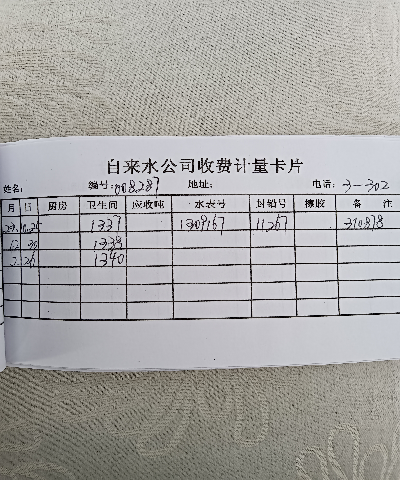 自来水公司收费计量卡片
姓名: 编号: 008287 地址: 电话: 3-302
月 日 厨房 卫生间 应收吨 水表号 封铅号 橡胶 备 注
1337 1309167 11267 310878
12 30 1338
2 26 1340